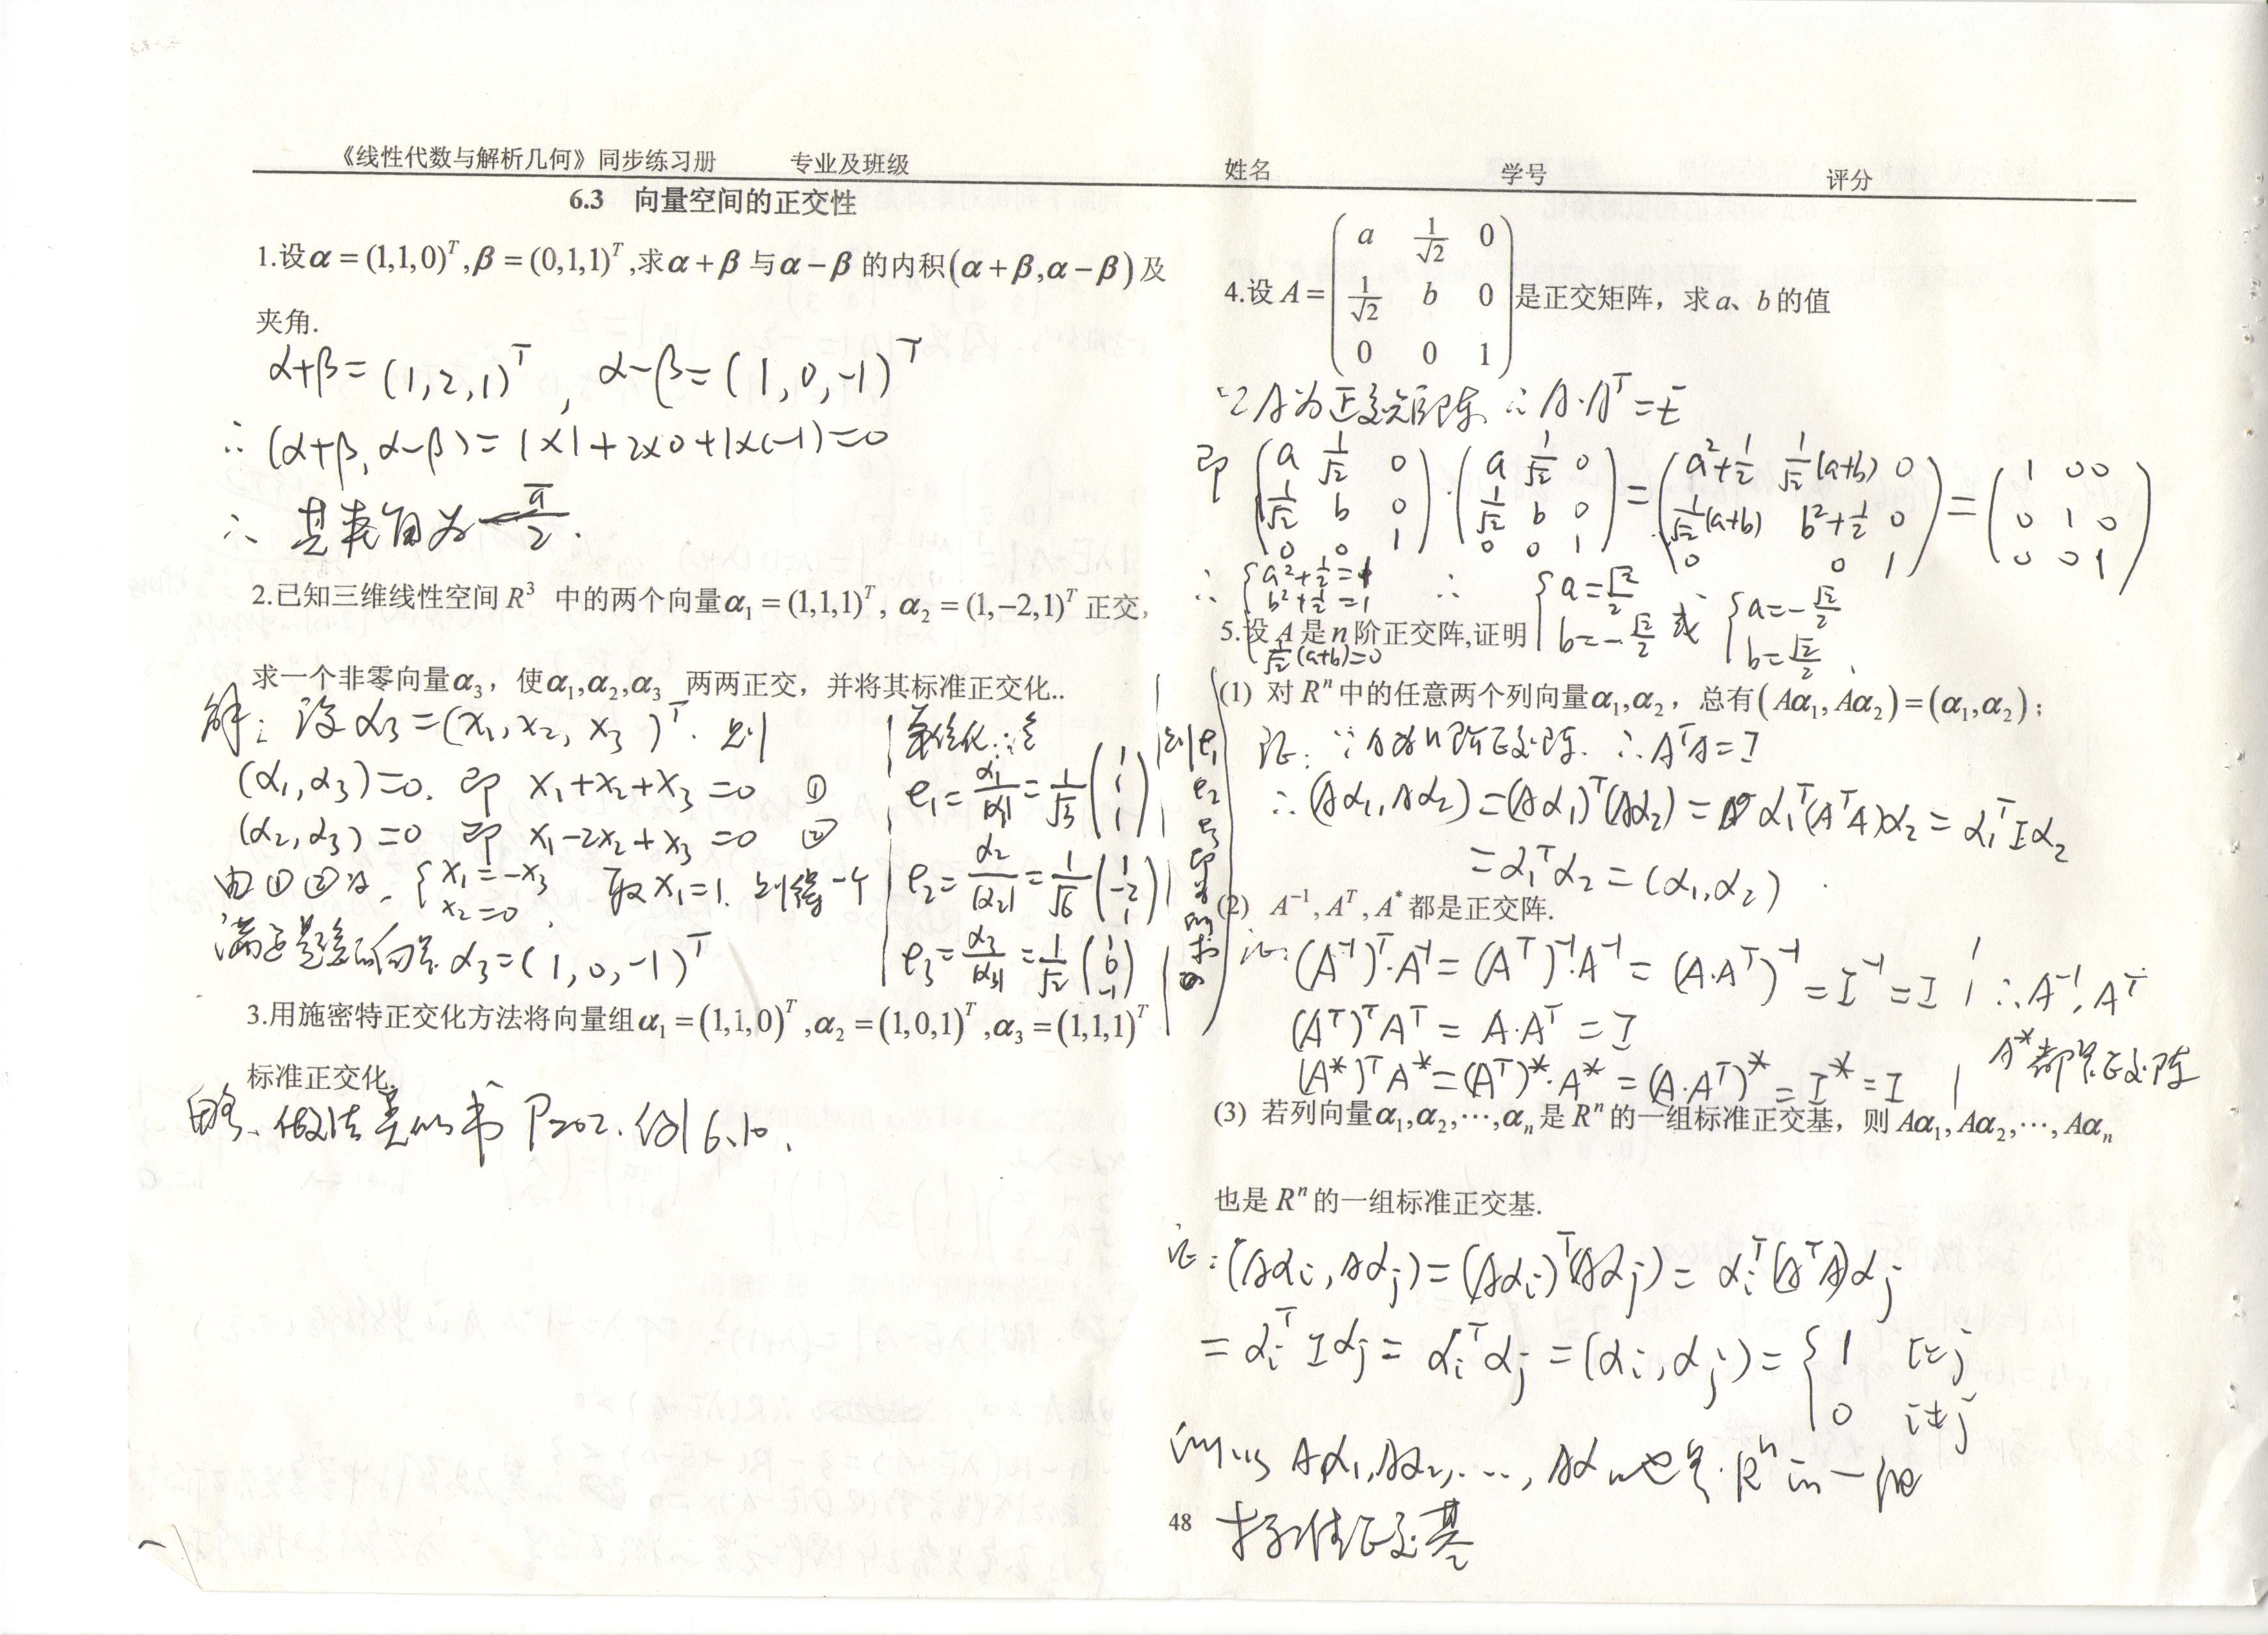 《线性代数与解析几何》同步练习册 专业及班级 姓名 学号 评分
6.3 向量空间的正交性
1.设α=(1,1,0)^T,β=(0,1,1)^T,求α+β与α−β的内积(α+β,α−β)及
夹角.
α+β=(1,2,1)^T, α−β=(1,0,−1)^T
∴ (α+β,α−β)=1×1+2×0+1×(−1)=0
∴ 其夹角为 π/2.
2.已知三维线性空间R³ 中的两个向量α₁=(1,1,1)^T, α₂=(1,−2,1)^T 正交,
求一个非零向量α₃，使α₁,α₂,α₃ 两两正交，并将其标准正交化..
解: 设α₃=(x₁,x₂,x₃)^T. 则
(α₁,α₃)=0. 即 x₁+x₂+x₃=0 ①
(α₂,α₃)=0 即 x₁−2x₂+x₃=0 ②
由①②得. {x₁=−x₃ x₂=0. 取x₁=1. 则得一个
满足题意的向量α₃=(1,0,−1)^T
单位化:
e₁=α₁/|α₁|=1/√3 (1 1 1)
e₂=α₂/|α₂|=1/√6 (1 −2 1)
e₃=α₃/|α₃|=1/√2 (1 0 −1)
则e₁
e₂
e₃
即
为
所
求
3.用施密特正交化方法将向量组α₁=(1,1,0)^T,α₂=(1,0,1)^T,α₃=(1,1,1)^T
标准正交化.
略. 做法类似书 P202. 例6.10.
4.设A=(a 1/√2 0; 1/√2 b 0; 0 0 1)是正交矩阵，求a、b的值
∵A为正交矩阵 ∴A·A^T=E
即 (a 1/√2 0; 1/√2 b 0; 0 0 1)·(a 1/√2 0; 1/√2 b 0; 0 0 1)=(a²+1/2 1/√2(a+b) 0; 1/√2(a+b) b²+1/2 0; 0 0 1)=(1 0 0; 0 1 0; 0 0 1)
∴ {a²+1/2=1 b²+1/2=1 1/√2(a+b)=0 ∴ {a=√2/2 b=−√2/2 或 {a=−√2/2 b=√2/2.
5.设A是n阶正交阵,证明
(1) 对R^n中的任意两个列向量α₁,α₂，总有(Aα₁,Aα₂)=(α₁,α₂)；
证: ∵A为n阶正交阵. ∴A^TA=I
∴(Aα₁,Aα₂)=(Aα₁)^T(Aα₂)=α₁^T(A^TA)α₂=α₁^TIα₂
=α₁^Tα₂=(α₁,α₂).
(2) A⁻¹,A^T,A*都是正交阵.
证: (A⁻¹)^T·A⁻¹=(A^T)⁻¹·A⁻¹=(A·A^T)⁻¹=I⁻¹=I ∴A⁻¹,A^T
(A^T)^TA^T=A·A^T=I
A*都是正交阵
(A*)^TA*=(A^T)*·A*=(A·A^T)*=I*=I
(3) 若列向量α₁,α₂,⋯,αₙ是R^n的一组标准正交基，则Aα₁,Aα₂,⋯,Aαₙ
也是R^n的一组标准正交基.
证:(Aαᵢ,Aαⱼ)=(Aαᵢ)^T(Aαⱼ)=αᵢ^T(A^TA)αⱼ
=αᵢ^TIαⱼ=αᵢ^Tαⱼ=(αᵢ,αⱼ)={1 i=j 0 i≠j
所以Aα₁,Aα₂,⋯,Aαₙ也是R^n的一组
标准正交基
48